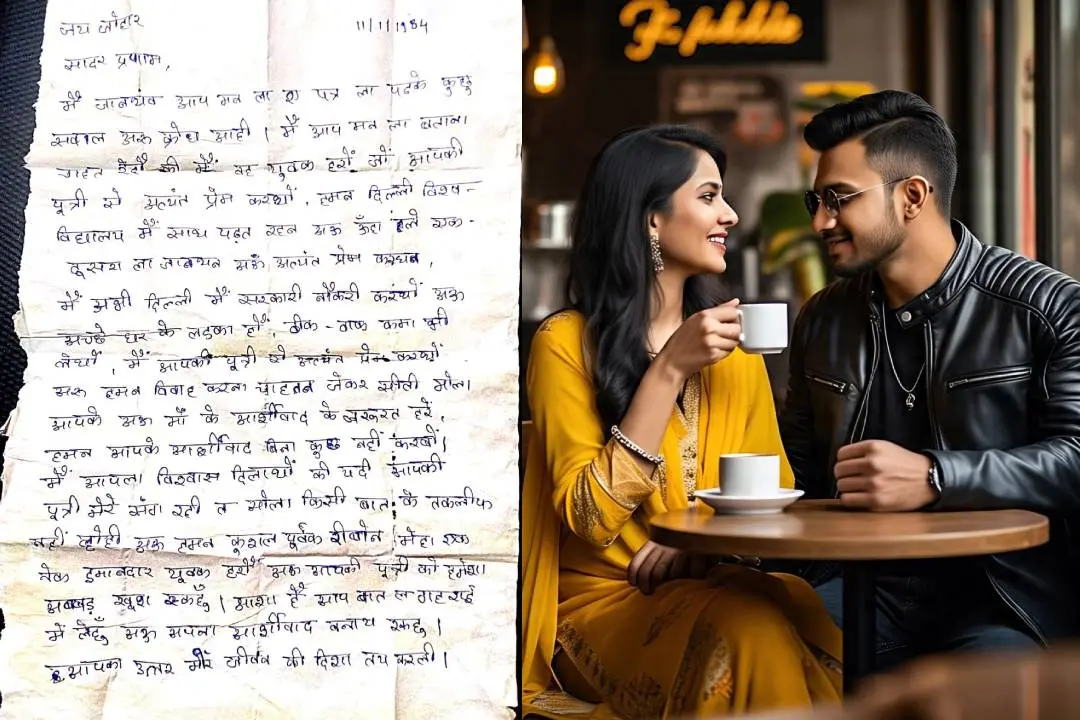 जय जोहार 11/11/1984
सादर प्रणाम,
मैं जानथंव आप मन ला ए पत्र ला पढ़के कुछु
सवाल अऊ क्रोध आही । मैं आप मन ला बताना
चाहत हंव की मैं वह युवक हरों जो आपकी
पुत्री से अत्यंत प्रेम करथों, हमन दिल्ली विश्व-
विद्यालय में साथ पढ़त रहेन अऊ ऊँहा ले एक-
दूसरा ला जानथन अऊ अत्यंत प्रेम करथन,
मैं अभी दिल्ली में सरकारी नौकरी करथों अऊ
अच्छे घर के लड़का हों, ठीक-ठाक कमा भी
लेथों, मैं आपकी पुत्री से अत्यंत प्रेम करथों
अऊ हमन विवाह करना चाहतन जेकर सीती मोला
आपके अऊ माँ के आर्शीवाद के जरूरत हरे,
हमन आपके आर्शीवाद बिना कुछ नहीं करवों।
मैं आपला विश्वास दिलाथों की यदी आपकी
पुत्री मेरे संग रही त ओला किसी बात के तकलीफ
नहीं होही अऊ हमन कुशल पूर्वक रीबोन। मेहा एक
नेक ईमानदार युवक हरों अऊ आपकी पुत्री को हमेशा
खुश रखहुँ। आशा हे आप बात ल
में लेहुँ अऊ अपना आर्शीवाद बनाय रखहु।
आपका उत्तर मोर जीवन की दिशा तय करली।